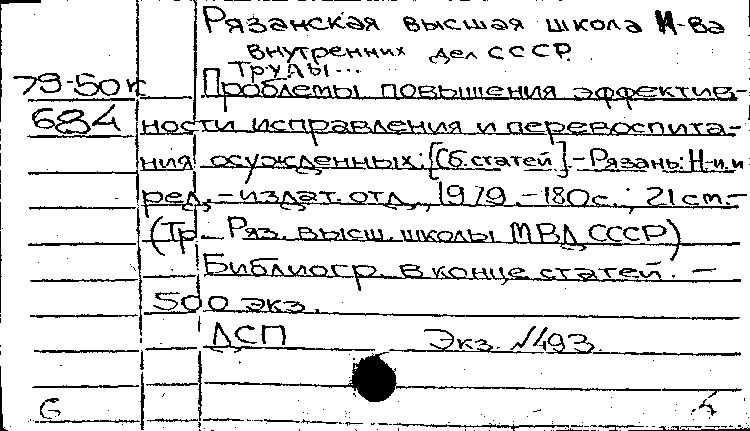 Рязанская высшая школа М-ва
внутренних дел СССР.
Труды...
79-50к Проблемы повышения эффектив-
684 ности исправления и перевоспита-
ния осужденных: [Сб. статей]. - Рязань: Н-и и
ред.-издат. отд., 1979. - 180 с.; 21 см. -
(Тр. Ряз. высш. школы МВД СССР)
Библиогр. в конце статей. -
500 экз.
ДСП Экз. №493.
6